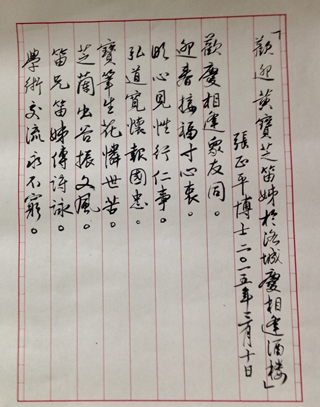 「歡迎黃寶芝笛姊於洛城慶相逢酒樓」
張正平博士二〇一五年三月十日
歡慶相逢眾友同。
迎春接福寸心衷。
明心見性行仁事。
弘道寬懷報國忠。
寶筆生花憐世苦。
芝蘭出谷振文風。
笛兄笛姊傳詩詠。
學術交流永不窮。